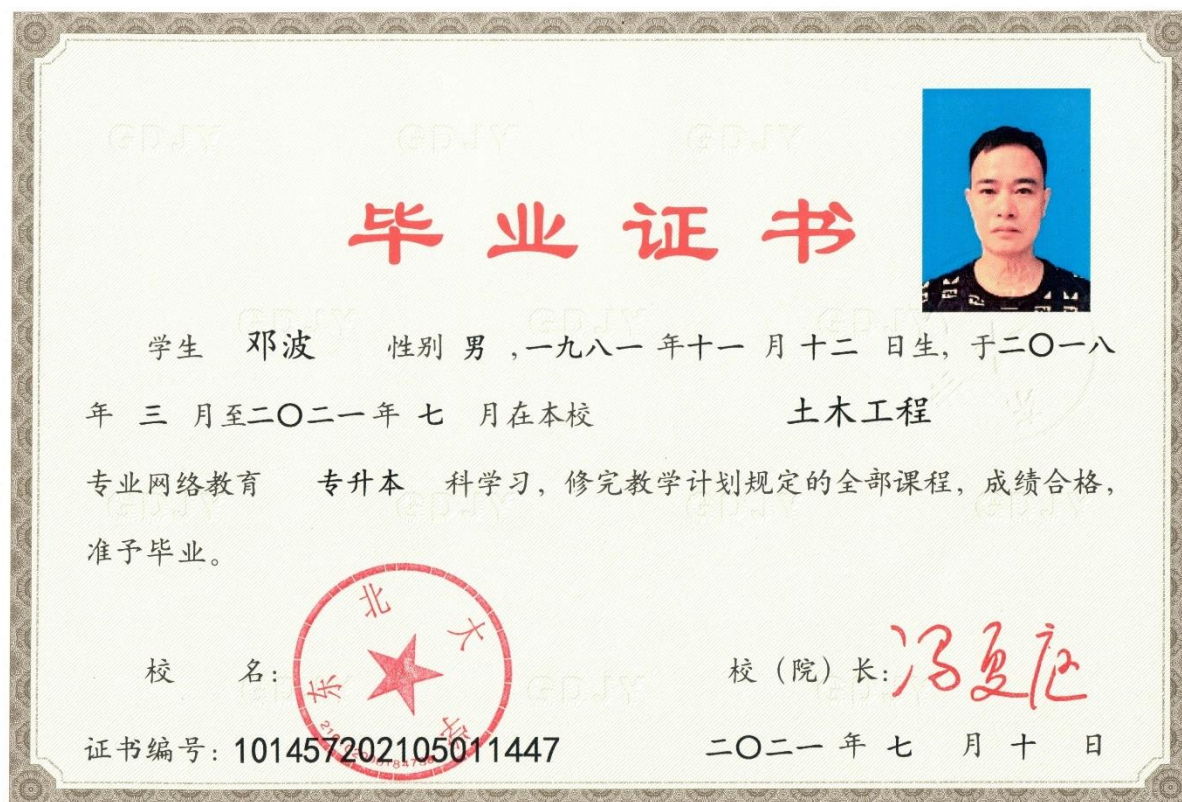 毕业证书
学生 邓波 性别 男 ,一九八一 年十一 月 十二 日生, 于二〇一八
年 三 月至二〇二一年 七 月在本校 土木工程
专业网络教育 专升本 科学习, 修完教学计划规定的全部课程, 成绩合格,
准予毕业。
东北大学
校 名:
校 (院) 长: 冯夏庭
证书编号: 101457202105011447
二〇二一 年 七 月 十 日